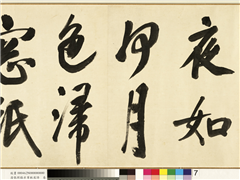 夜如
何月
色滿
窓紙
7